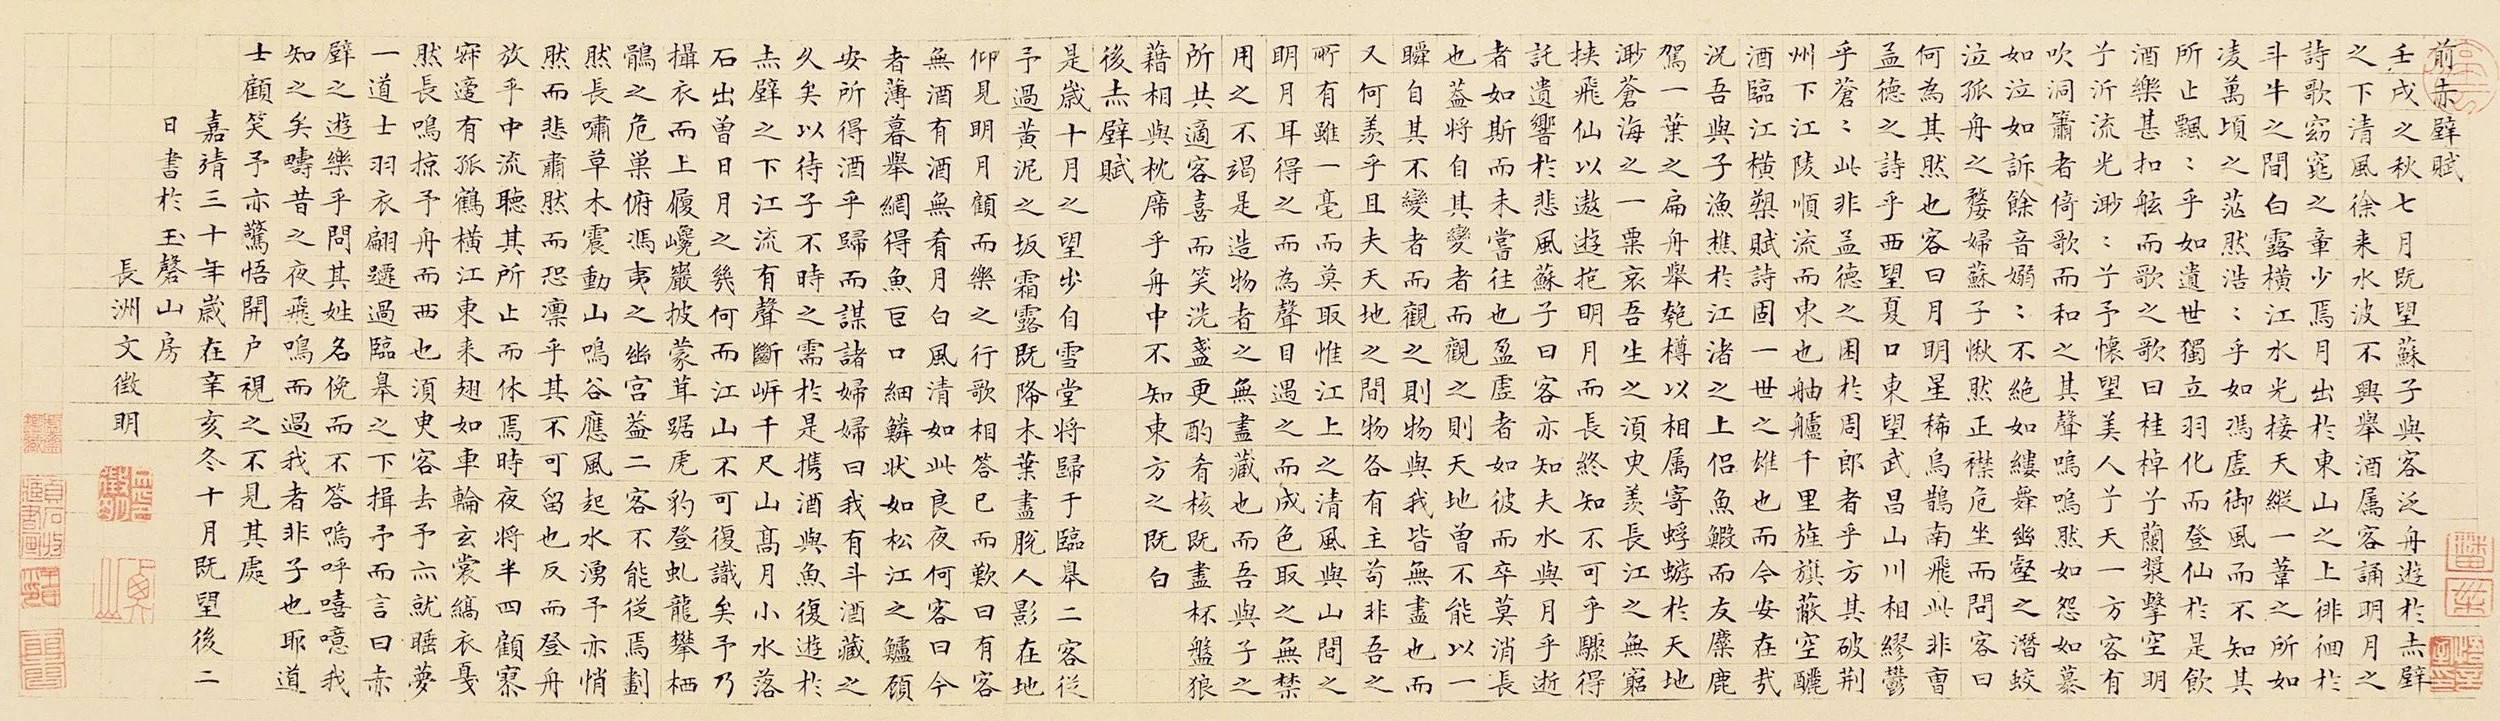 前赤壁賦
壬戌之秋七月既望蘇子與客泛舟遊於赤壁
之下清風徐来水波不興舉酒属客誦明月之
詩歌窈窕之章少焉月出於東山之上徘徊於
斗牛之間白露橫江水光接天縱一葦之所如
凌萬頃之茫然浩〻乎如馮虛御風而不知其
所止飄〻乎如遺世獨立羽化而登仙於是飲
酒樂甚扣舷而歌之歌曰桂棹兮蘭槳擊空明
兮泝流光渺〻兮予懷望美人兮天一方客有
吹洞簫者倚歌而和之其聲嗚嗚然如怨如慕
如泣如訴餘音嫋〻不絕如縷舞幽壑之潛蛟
泣孤舟之嫠婦蘇子愀然正襟危坐而問客曰
何為其然也客曰月明星稀烏鵲南飛此非曹
孟德之詩乎西望夏口東望武昌山川相繆鬱
乎蒼〻此非孟德之困於周郎者乎方其破荊
州下江陵順流而東也舳艫千里旌旗蔽空釃
酒臨江橫槊賦詩固一世之雄也而今安在哉
況吾與子漁樵於江渚之上侶魚鰕而友麋鹿
駕一葉之扁舟舉匏樽以相属寄蜉蝣於天地
渺蒼海之一粟哀吾生之須臾羨長江之無窮
挾飛仙以遨遊抱明月而長終知不可乎驟得
託遺響於悲風蘇子曰客亦知夫水與月乎逝
者如斯而未嘗往也盈虛者如彼而卒莫消長
也蓋將自其變者而觀之則天地曾不能以一
瞬自其不變者而觀之則物與我皆無盡也而
又何羨乎且夫天地之間物各有主苟非吾之
所有雖一毫而莫取惟江上之清風與山間之
明月耳得之而為聲目遇之而成色取之無禁
用之不竭是造物者之無盡藏也而吾與子之
所共適客喜而笑洗盞更酌肴核既盡杯盤狼
藉相與枕席乎舟中不知東方之既白
後赤壁賦
是歲十月之望步自雪堂將歸于臨皋二客從
予過黃泥之坂霜露既降木葉盡脫人影在地
仰見明月顧而樂之行歌相答已而歎曰有客
無酒有酒無肴月白風清如此良夜何客曰今
者薄暮舉網得魚巨口細鱗狀如松江之鱸顧
安所得酒乎歸而謀諸婦婦曰我有斗酒藏之
久矣以待子不時之需於是攜酒與魚復遊於
赤壁之下江流有聲斷岸千尺山高月小水落
石出曾日月之幾何而江山不可復識矣予乃
攝衣而上履巉巖披蒙茸踞虎豹登虬龍攀栖
鶻之危巢俯馮夷之幽宮蓋二客不能從焉劃
然長嘯草木震動山鳴谷應風起水湧予亦悄
然而悲肅然而恐凜乎其不可留也反而登舟
放乎中流聽其所止而休焉時夜將半四顧寂
寥適有孤鶴橫江東来翅如車輪玄裳縞衣戛
然長鳴掠予舟而西也須臾客去予亦就睡夢
一道士羽衣翩躚過臨皋之下揖予而言曰赤
壁之遊樂乎問其姓名俛而不答嗚呼噫嘻我
知之矣疇昔之夜飛鳴而過我者非子也耶道
士顧笑予亦驚悟開户視之不見其處
嘉靖三十年歲在辛亥冬十月既望後二
日書於玉磬山房
長洲文徵明